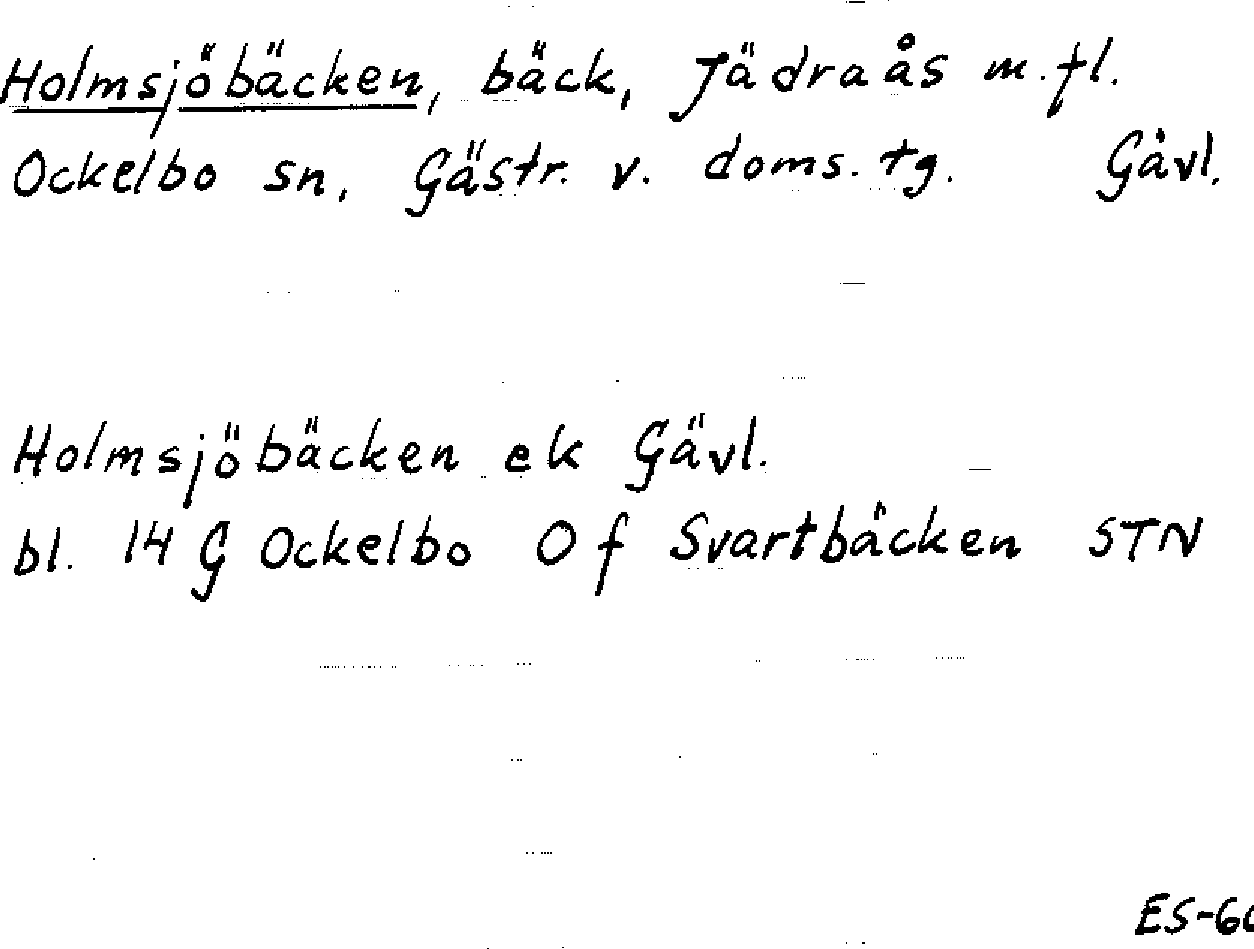 Holmsjöbäcken, bäck, Jädraås m.fl.
Ockelbo sn, Gästr. v. doms. tg. Gävl.
Holmsjöbäcken ek Gävl.
bl. 14 G Ockelbo O f Svartbäcken STN